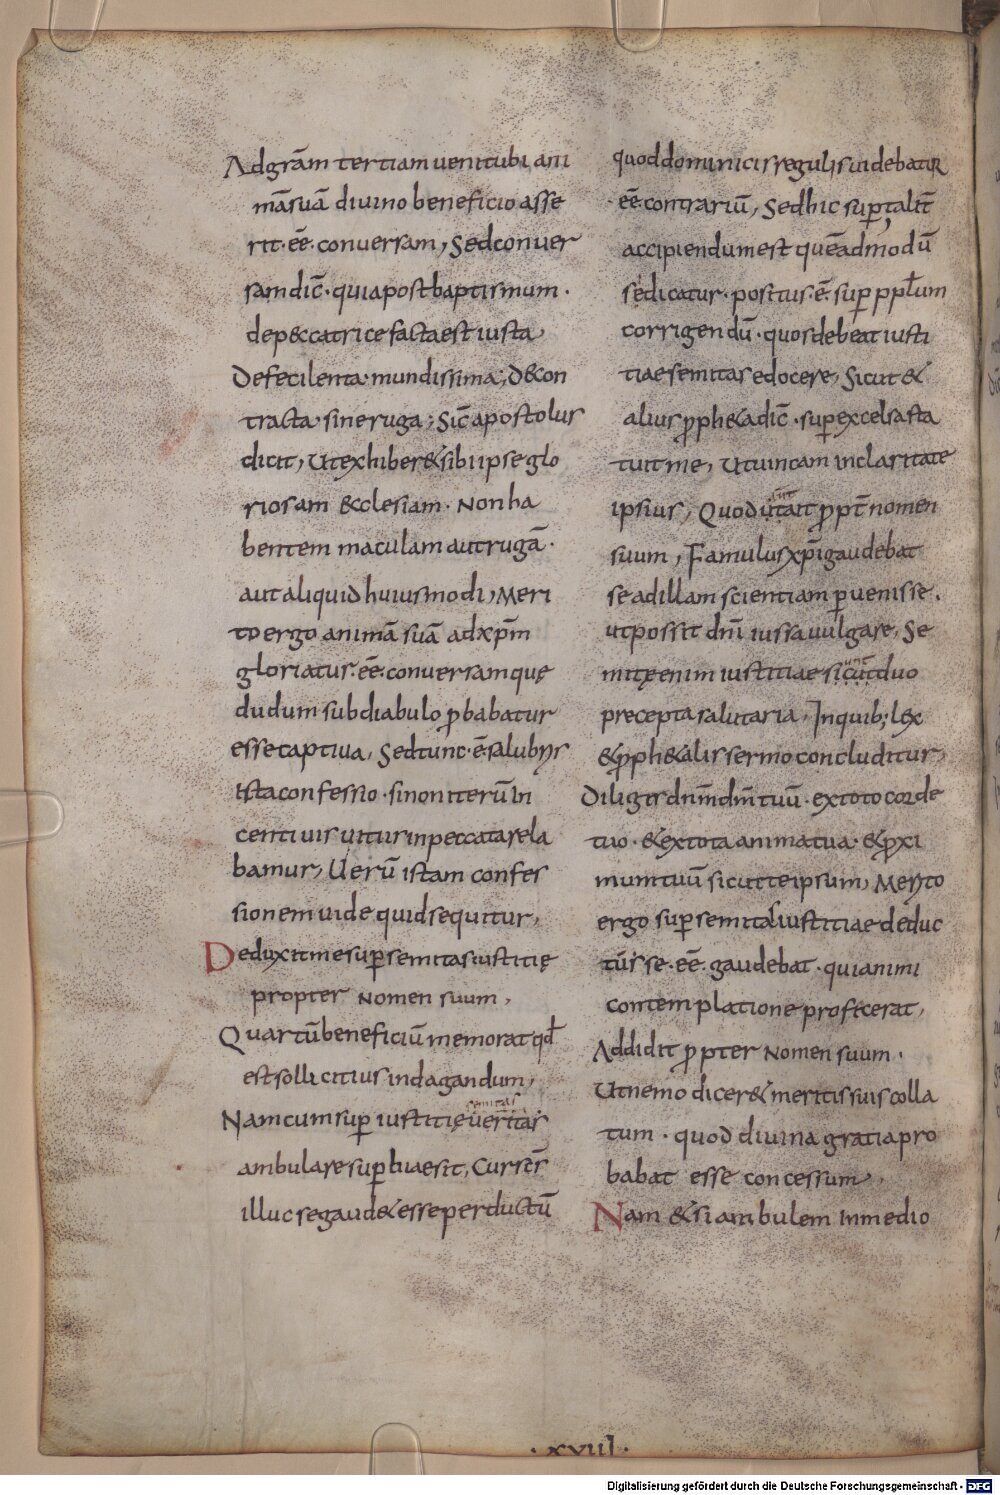 Adgrām tertiam uenitubi ani
māsuā diuino beneficio asse
rit·ēē·conuersam, Sedconuer
samdic̄·quiapostbaptismum·
depeccatricefactaest iusta
Defecilenta·mundissima; D&con
tracta·sineruga; Sic̄apostolus
dicit, Utexhiber&sibi ipse glo
riosam &clesiam· Nonha
bentem maculam autrugā·
autaliquid huiusmodi, Meri
to ergo animā suā adxp̄m
gloriatus·ēē·conuersamquę
dudum subdiabulo ꝓbabatur
essecaptiua, Sedtunc·ē·salubris
istaconfessio·sinoniterū in
centiuis uitiis inpeccatarela
bamur, Uerū istam confes
sionem uide quidsequitur,
Deduxitmesuꝑsemitasiustitię
propter nomen suum,
Quartūbeneficiū memorat qđ
estsollicitius indagandum,
semitas
Namcumsuꝑ iustitię ueritas
ambularesuꝑbuaesit, Cursēs
illucsegaud&esseperductū
quoddominicisregulisuidebatur
ēēcontrariū, Sedhic suꝑtalit̄
accipiendumest quēadmodū
sedicatur·positus·ē·suꝑ ppłum
corrigendū·quosdebeat iusti
tiaesemitasedocere, Sicut&
alius ꝓph&adic̄·suꝑexcelsasta
tuitme, Utuincam inclaritate
ipsius, Quod utait ꝓpt̄ nomen
suum, Famulusxp̄igaudebat
seadillamscientiam ꝑuenisse.
utpossit dn̄i iussauulgare, Se
mitęenim iustitiae sicut duo
preceptasalutaria, Inquib; lex
&ꝓph&alissermoconcluditur,
Diligisdn̄mdm̄tuū·extotocorde
tuo·&extotaanimatua·&ꝓxi
mumtuū sicutteipsum, Merito
ergo suꝑsemitasiustitiaededuc
tūsse·ēē·gaudebat·quianimi
contemplatione proficerat,
Addidit ꝓpter nomen suum·
Utnemo dicer&meritissuiscolla
tum·quod diuina gratiapro
babat esse concessum,
Nam &siambulem inmedio
·xviii·
Digitalisierung gefördert durch die Deutsche Forschungsgemeinschaft - DFG